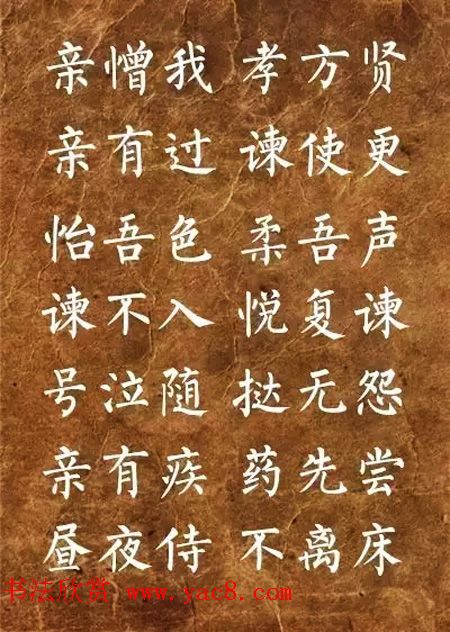 亲憎我 孝方贤
亲有过 谏使更
怡吾色 柔吾声
谏不入 悦复谏
号泣随 挞无怨
亲有疾 药先尝
昼夜侍 不离床
书法欣赏 www.yac8.com